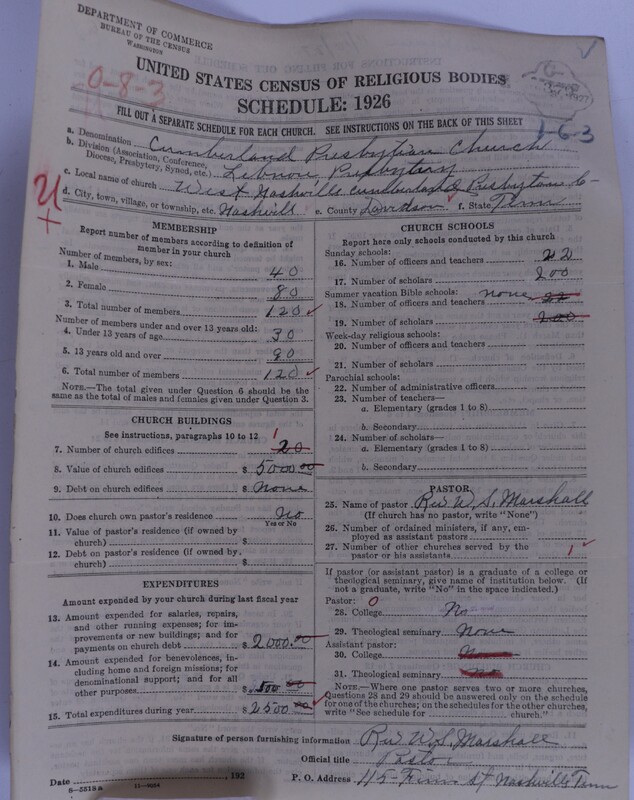 DEPARTMENT OF COMMERCE
BUREAU OF THE CENSUS
WASHINGTON
0-8-3
UNITED STATES CENSUS OF RELIGIOUS BODIES
SCHEDULE: 1926
1-6-3
FILL OUT A SEPARATE SCHEDULE FOR EACH CHURCH. SEE INSTRUCTIONS ON THE BACK OF THIS SHEET
a. Denomination Cumberland Presbytian Church
b. Division (Association, Conference, Diocese, Presbytery, Synod, etc.) Lebnon Presbytery
c. Local name of church West Nashville Cumberland Presbytans C-
d. City, town, village, or township, etc. Nashvill e. County Davidson f. State Tenn
MEMBERSHIP
Report number of members according to definition of member in your church
Number of members, by sex:
1. Male 40
2. Female 80
3. Total number of members 120
Number of members under and over 13 years old:
4. Under 13 years of age 30
5. 13 years old and over 90
6. Total number of members 120
NOTE.—The total given under Question 6 should be the same as the total of males and females given under Question 3.
CHURCH BUILDINGS
See instructions, paragraphs 10 to 12
7. Number of church edifices 20 1
8. Value of church edifices $ 5000.00
9. Debt on church edifices $ None
10. Does church own pastor's residence No
Yes or No
11. Value of pastor's residence (if owned by church) $
12. Debt on pastor's residence (if owned by church) $
EXPENDITURES
Amount expended by your church during last fiscal year
13. Amount expended for salaries, repairs, and other running expenses; for improvements or new buildings; and for payments on church debt $ 2000.00
14. Amount expended for benevolences, including home and foreign missions; for denominational support; and for all other purposes $ 500 00
15. Total expenditures during year $ 2500 00
CHURCH SCHOOLS
Report here only schools conducted by this church
Sunday schools:
16. Number of officers and teachers 22
17. Number of scholars 200
Summer vacation Bible schools: none
18. Number of officers and teachers 22
19. Number of scholars 200
Week-day religious schools:
20. Number of officers and teachers
21. Number of scholars
Parochial schools:
22. Number of administrative officers
23. Number of teachers—
a. Elementary (grades 1 to 8)
b. Secondary
24. Number of scholars—
a. Elementary (grades 1 to 8)
b. Secondary
PASTOR
25. Name of pastor Rev W. S. Marshall
(If church has no pastor, write "None")
26. Number of ordained ministers, if any, employed as assistant pastors
27. Number of other churches served by the pastor or his assistants 1
If pastor (or assistant pastor) is a graduate of a college or theological seminary, give name of institution below. (If not a graduate, write "No" in the space indicated.)
Pastor: 0
28. College No
29. Theological seminary None
Assistant pastor:
30. College
31. Theological seminary No
NOTE.—Where one pastor serves two or more churches, Questions 28 and 29 should be answered only on the schedule for one of the churches; on the schedules for the other churches, write "See schedule for church."
Signature of person furnishing information Rev W. S. Marshall
Official title Pastor
Date , 192 P. O. Address 45 St Nashville, Tenn
8-5518a 11-9054